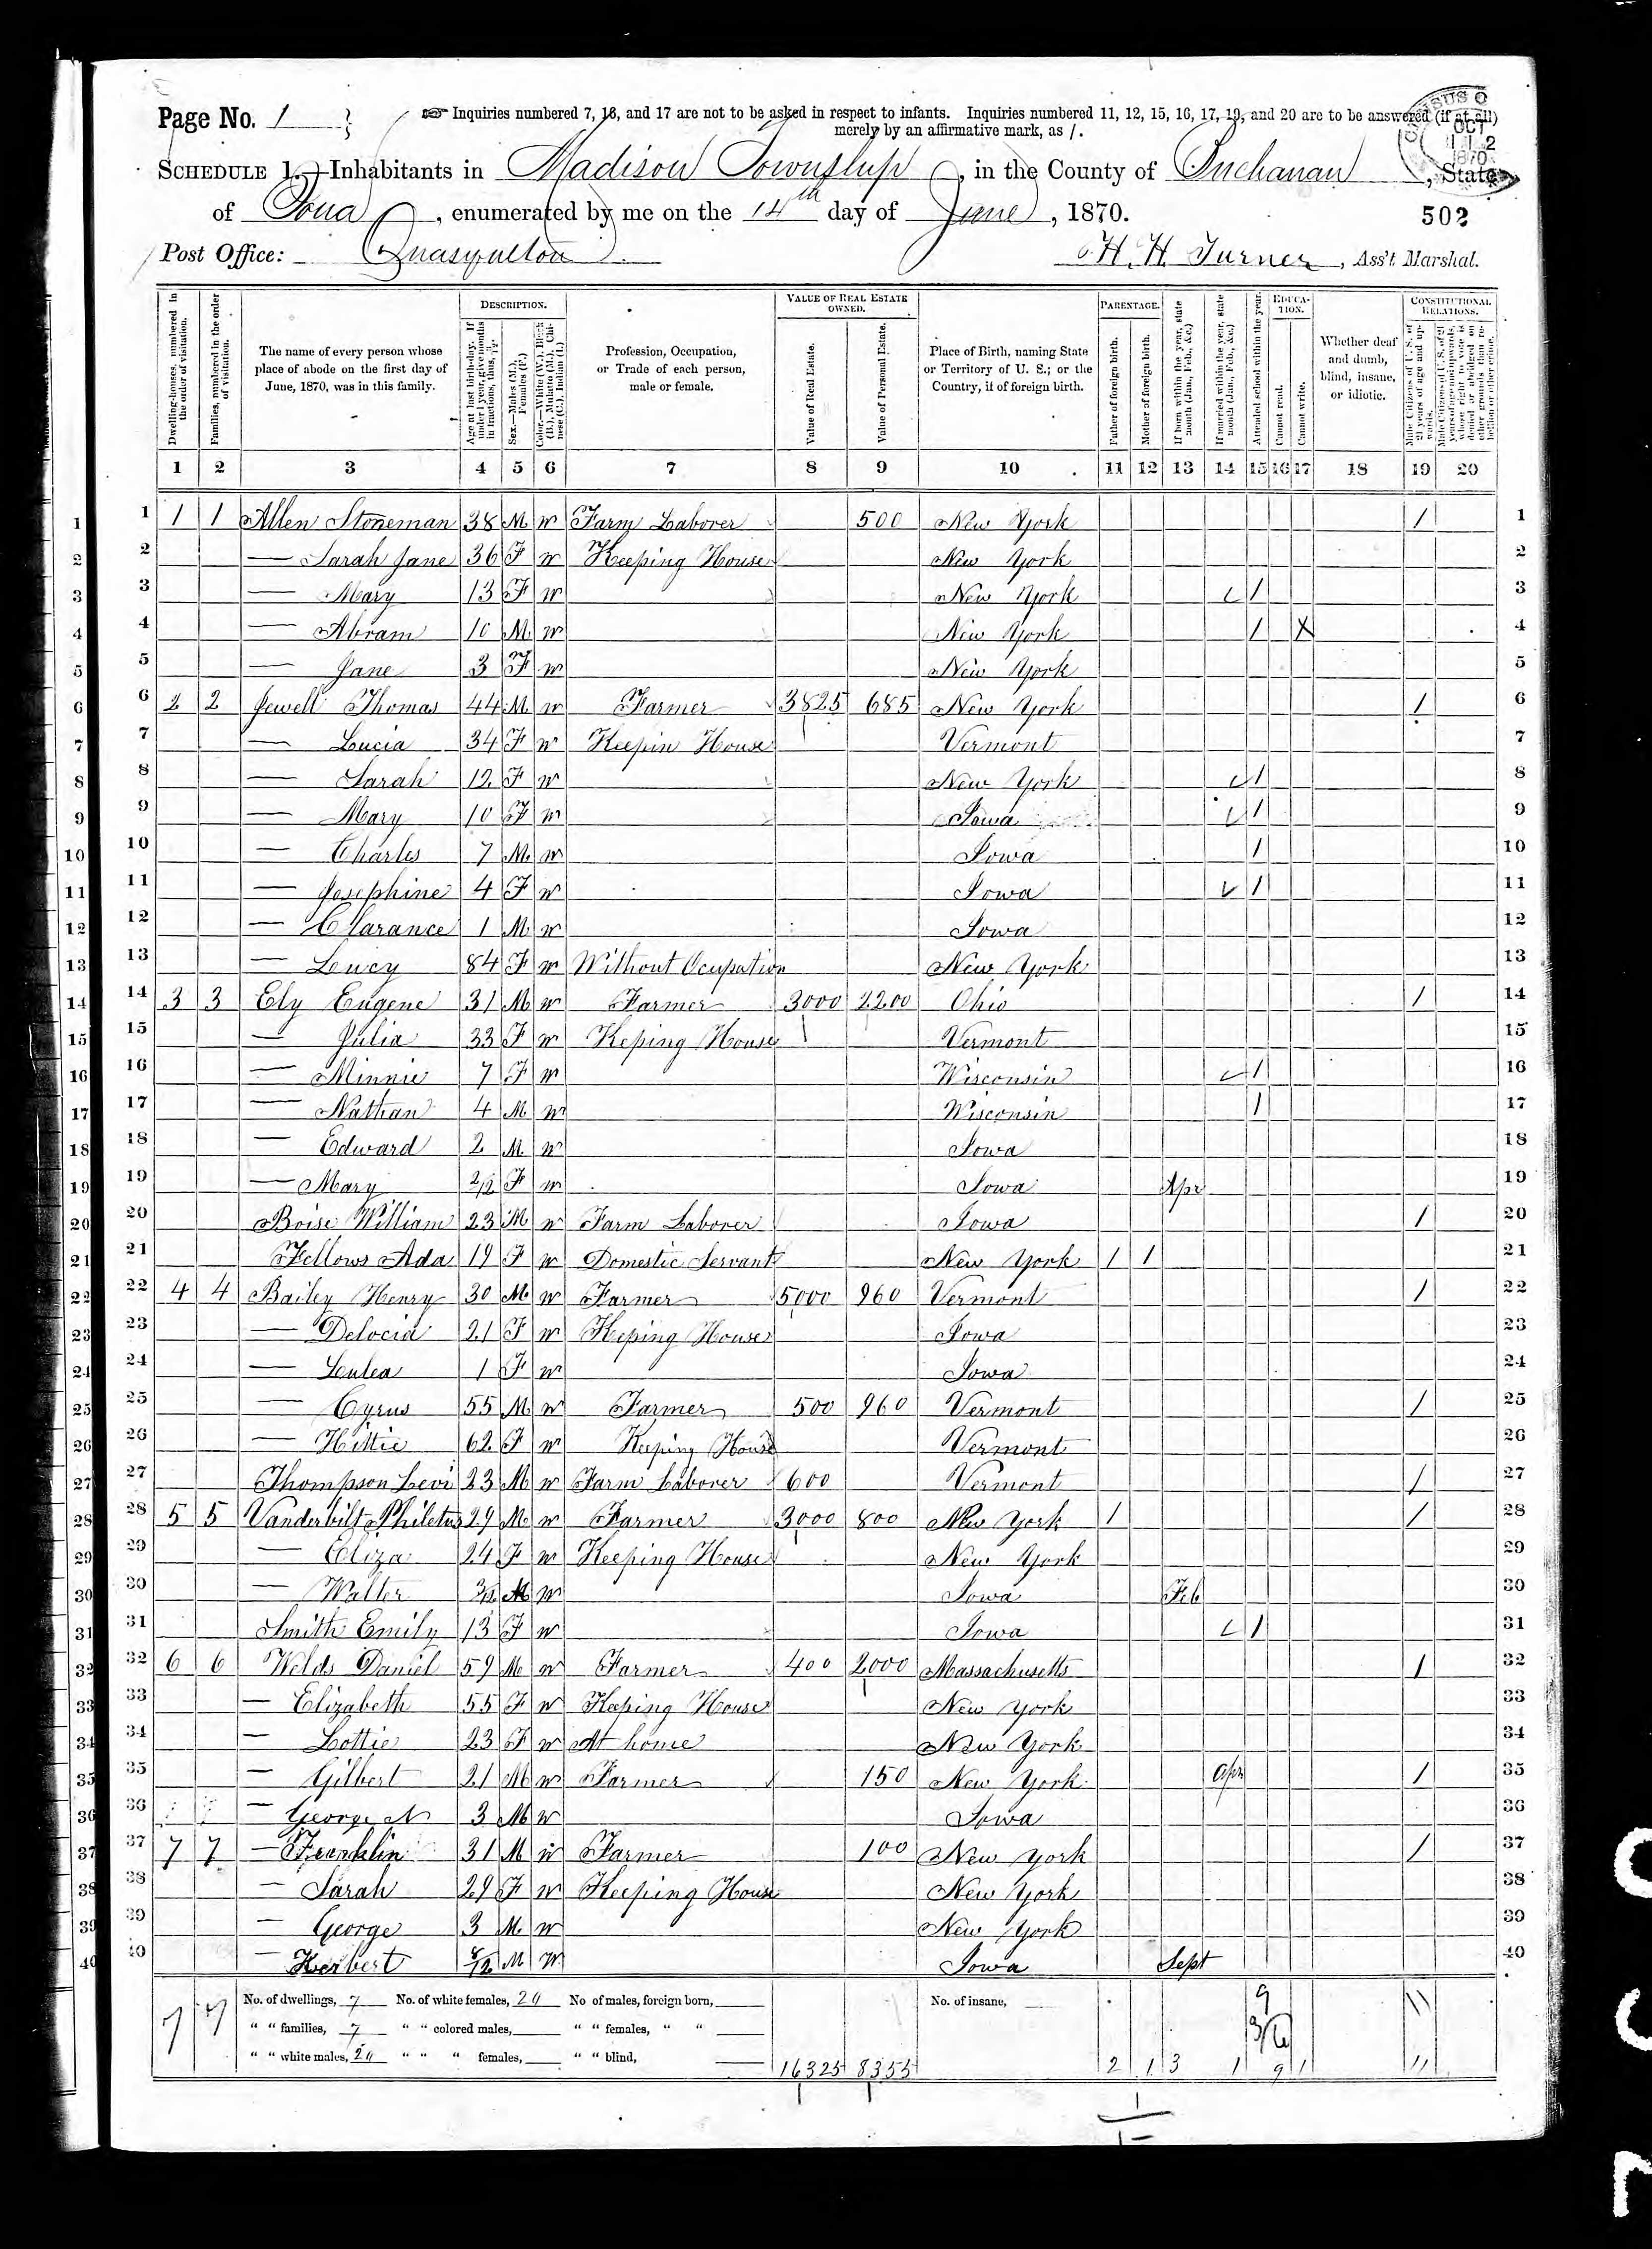 Page No. 1
☞ Inquiries numbered 7, 16, and 17 are not to be asked in respect to infants. Inquiries numbered 11, 12, 15, 16, 17, 19, and 20 are to be answered (if at all)
merely by an affirmative mark, as /.
SCHEDULE 1.—Inhabitants in Madison Township, in the County of Buchanan, State
of Iowa, enumerated by me on the 14th day of June, 1870.
502
Post Office: Quasqueton
H. H. Turner, Ass't Marshal.
Dwelling-houses, numbered in the order of visitation.
Families, numbered in the order of visitation.
The name of every person whose place of abode on the first day of June, 1870, was in this family.
DESCRIPTION.
Age at last birth-day. If under 1 year, give months in fractions, thus, 3/12.
Sex.—Males (M.), Females (F.)
Color.—White (W.), Black (B.), Mulatto (M.), Chinese (C.), Indian (I.)
Profession, Occupation, or Trade of each person, male or female.
VALUE OF REAL ESTATE OWNED.
Value of Real Estate.
Value of Personal Estate.
Place of Birth, naming State or Territory of U. S.; or the Country, if of foreign birth.
PARENTAGE.
Father of foreign birth.
Mother of foreign birth.
If born within the year, state month (Jan., Feb., &c.)
If married within the year, state month (Jan., Feb., &c.)
Attended school within the year.
EDUCATION.
Cannot read.
Cannot write.
Whether deaf and dumb, blind, insane, or idiotic.
CONSTITUTIONAL RELATIONS.
Male Citizens of U. S. of 21 years of age and upwards.
Male Citizens of U. S. of 21 years of age and upwards, where right to vote is denied or abridged on other grounds than rebellion or other crime.
1 2 3 4 5 6 7 8 9 10 11 12 13 14 15 16 17 18 19 20
1 1 1 Allen Stoneman 38 M W Farm Laborer 500 New York / 1
2 — Sarah Jane 36 F W Keeping House New York 2
3 — Mary 13 F W New York / 3
4 — Abram 10 M W New York / X 4
5 — Jane 3 F W New York 5
6 2 2 Jewell Thomas 44 M W Farmer 3825 685 New York / 6
7 — Lucia 34 F W Keepin House Vermont 7
8 — Sarah 12 F W New York / 8
9 — Mary 10 F W Iowa / 9
10 — Charles 7 M W Iowa / 10
11 — Josephine 4 F W Iowa / 11
12 — Clarance 1 M W Iowa 12
13 — Lucy 84 F W Without Ocupation New York 13
14 3 3 Ely Eugene 31 M W Farmer 3000 2200 Ohio / 14
15 — Julia 33 F W Keping House Vermont 15
16 — Minnie 7 F W Wisconsin / 16
17 — Nathan 4 M W Wisconsin / 17
18 — Edward 2 M W Iowa 18
19 — Mary 2/12 F W Iowa Apr 19
20 Boise William 23 M W Farm Laborer Iowa / 20
21 Fellows Ada 19 F W Domestic Servant New York / / 21
22 4 4 Bailey Henry 30 M W Farmer 5000 960 Vermont / 22
23 — Delocia 21 F W Keping House Iowa 23
24 — Lulea 1 F W Iowa 24
25 — Cyrus 55 M W Farmer 500 960 Vermont / 25
26 — Hittie 62 F W Keeping House Vermont 26
27 Thompson Levi 23 M W Farm Laborer 600 Vermont / 27
28 5 5 Vanderbilt Philetus 29 M W Farmer 3000 800 New York / / 28
29 — Eliza 24 F W Keeping House New York 29
30 — Walter 3/12 M W Iowa Feb 30
31 Smith Emily 13 F W Iowa / 31
32 6 6 Welds Daniel 59 M W Farmer 400 2000 Massachusetts / 32
33 — Elizabeth 55 F W Keeping House New York 33
34 — Lottie 23 F W At home New York 34
35 — Gilbert 21 M W Farmer 150 New York Apr / 35
36 — George N 3 M W Iowa 36
37 7 7 — Franklin 31 M W Farmer 100 New York / 37
38 — Sarah 29 F W Keeping House New York 38
39 — George 3 M W New York 39
40 — Herbert 8/12 M W Iowa Sept 40
No. of dwellings, 7 No. of white females, 20 No of males, foreign born, No. of insane,
" " families, 7 " " colored males, " " females, " "
" " white males, 20 " " " females, " " blind,
16325 8355 2 1 3 1 9 1 11